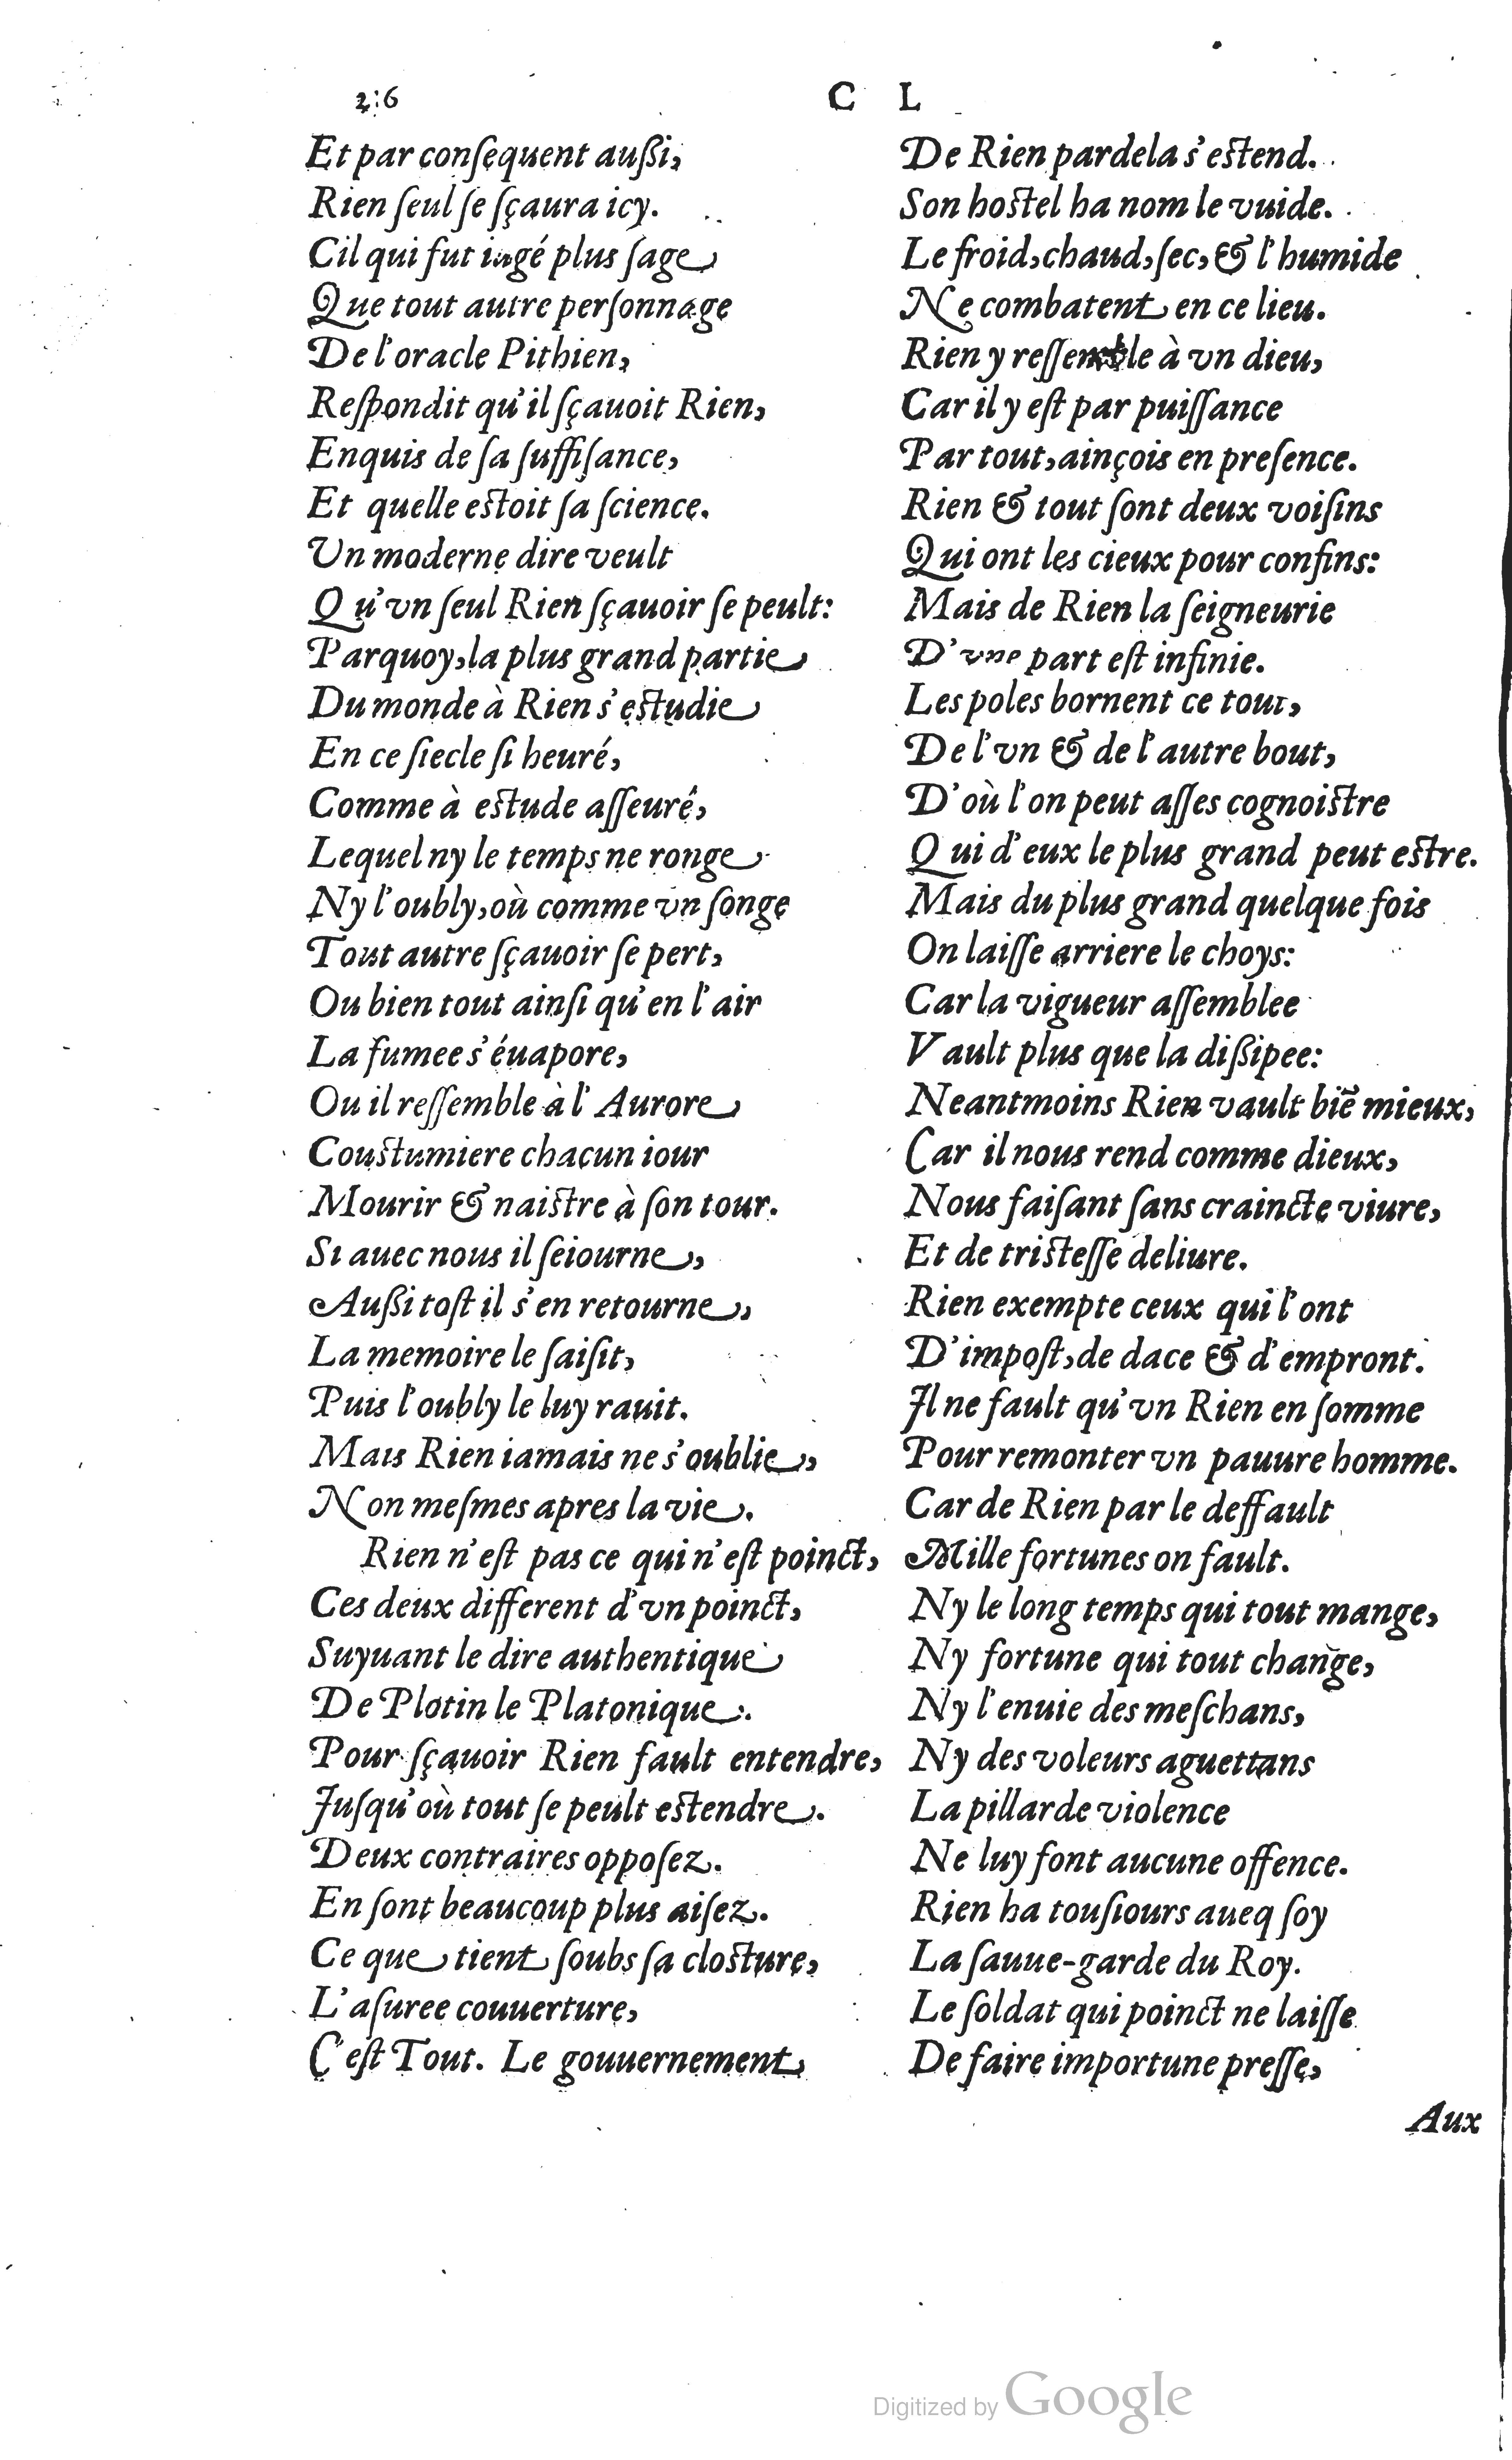 2:6
C L
Et par conſequent außi,
Rien ſeul ſe ſçaura icy.
Cil qui fut iugé plus ſage
Que tout autre perſonnage
De l'oracle Pithien,
Reſpondit qu'il ſçauoit Rien,
Enquis de ſa ſuffiſance,
Et quelle eſtoit ſa ſcience.
Un moderne dire veult
Qu'vn ſeul Rien ſçauoir ſe peult:
Parquoy, la plus grand partie
Du monde à Rien s'eſtudie
En ce ſiecle ſi heuré,
Comme à eſtude aſſeuré,
Lequel ny le temps ne ronge
Ny l'oubly, où comme vn ſonge
Tout autre ſçauoir ſe pert,
Ou bien tout ainſi qu'en l'air
La fumee s'éuapore,
Ou il reſſemble à l'Aurore
Couſtumiere chacun iour
Mourir & naiſtre à ſon tour.
Si auec nous il ſeiourne,
Außi toſt il s'en retourne,
La memoire le ſaiſit,
Puis l'oubly le luy rauit.
Mais Rien iamais ne s'oublie,
Non meſmes apres la vie.
Rien n'eſt pas ce qui n'eſt poinct,
Ces deux different d'vn poinct,
Suyuant le dire authentique
De Plotin le Platonique.
Pour ſçauoir Rien fault entendre,
Juſqu'où tout ſe peult eſtendre.
Deux contraires oppoſez.
En ſont beaucoup plus aiſez.
Ce que tient ſoubs ſa cloſture,
L'aſuree couuerture,
C'eſt Tout. Le gouuernement
De Rien pardela s'eſtend.
Son hoſtel ha nom le vuide.
Le froid, chaud, ſec, & l'humide
Ne combatent en ce lieu.
Rien y reſſemble à vn dieu,
Car il y eſt par puiſſance
Par tout, ainçois en preſence.
Rien & tout ſont deux voiſins
Qui ont les cieux pour confins:
Mais de Rien la ſeigneurie
D'vne part eſt infinie.
Les poles bornent ce tout,
De l'vn & de l'autre bout,
D'où l'on peut aſſes cognoiſtre
Qui d'eux le plus grand peut eſtre.
Mais du plus grand quelque fois
On laiſſe arriere le choys:
Car la vigueur aſſemblee
Vault plus que la dißipee:
Neantmoins Rien vault biē mieux,
Car il nous rend comme dieux,
Nous faiſant ſans craincte viure,
Et de triſteſſe deliure.
Rien exempte ceux qui l'ont
D'impoſt, de dace & d'empront.
Il ne fault qu'vn Rien en ſomme
Pour remonter vn pauure homme.
Car de Rien par le deffault
Mille fortunes on fault.
Ny le long temps qui tout mange,
Ny fortune qui tout change,
Ny l'enuie des meſchans,
Ny des voleurs aguettans
La pillarde violence
Ne luy font aucune offence.
Rien ha touſiours aueq ſoy
La ſauue-garde du Roy.
Le ſoldat qui poinct ne laiſſe
De faire importune preſſe,
Aux
Digitized by Google